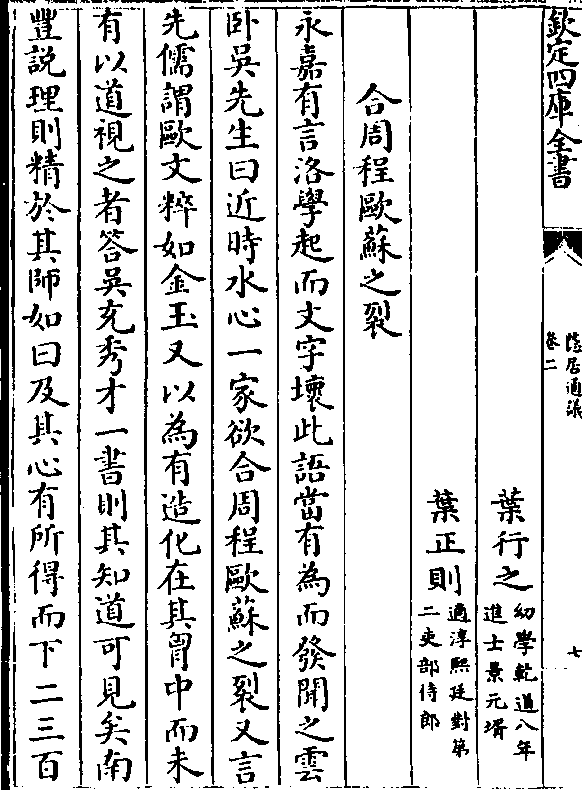 欽定四庫全書
隱居通議
卷二
七
葉行之
幼學乾道八年
進士景元壻
葉正則
適淳熙廷對第
二吏部侍郎
合周程歐蘇之裂
永嘉有言洛學起而文字壞此語當有為而發聞之雲
卧吳先生曰近時水心一家欲合周程歐蘇之裂又言
先儒謂歐文粹如金玉又以為有造化在其胷中而未
有以道視之者答吳充秀才一書則其知道可見矣南
豐説理則精於其師如曰及其心有所得而下二三百